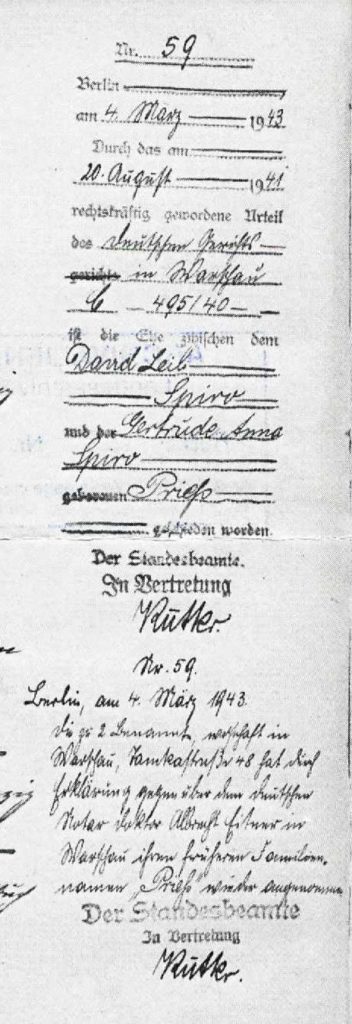 Nr. 59
Berlin
am 4. März 1943
Durch das am
20. August 1941
rechtskräftig gewordene Urteil
des Deutschen Gerichts
gerichts in Warschau
C - 495/40 -
ist die Ehe zwischen dem
David Leib
Spiro
und der Gertrude Anna
Spiro
geborenen Prieß
geschieden worden.
Der Standesbeamte.
In Vertretung
Rutkr.
Nr. 59.
Berlin, am 4. März 1943.
Die zu 2 Benannte, wohnhaft in
Warschau, Tamkastraße 48 hat durch
Erklärung gegenüber dem deutschen
Notar Doktor Albrecht Eitner in
Warschau ihren früheren Familien-
namen „Prieß“ wieder angenommen.
Der Standesbeamte
In Vertretung
Rutkr.